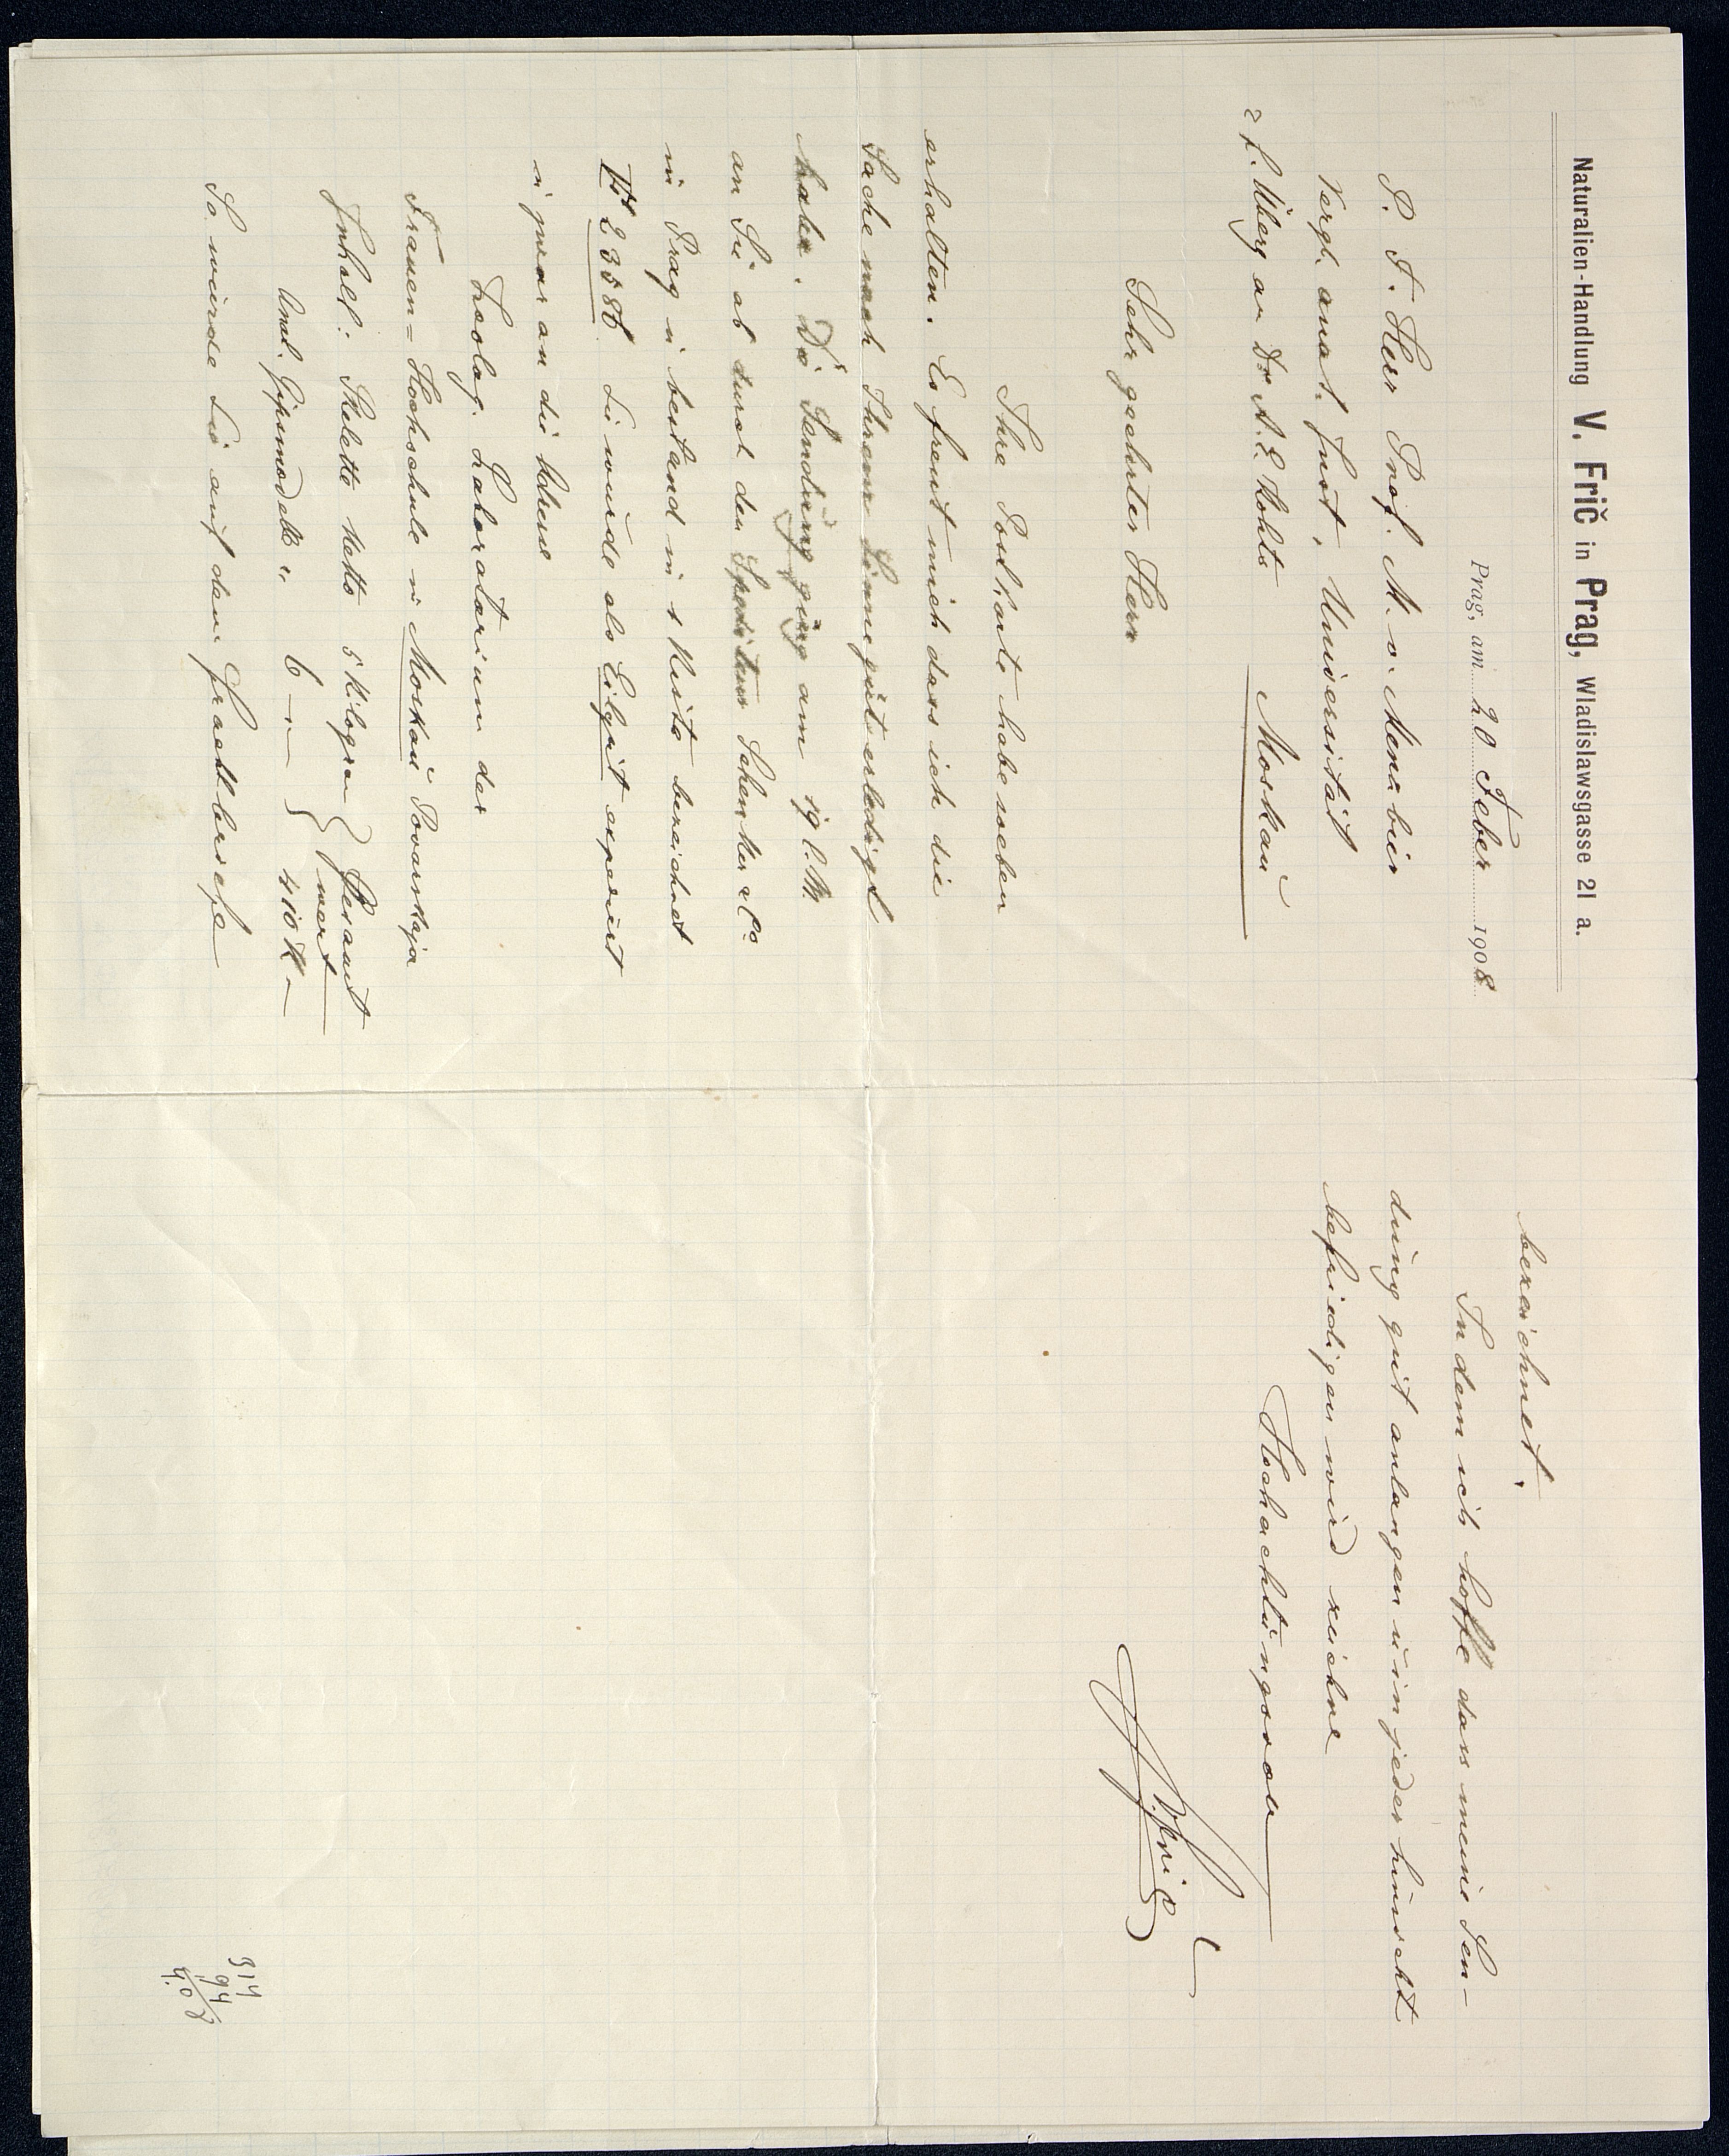 Naturalien-Handlung V. Frič in Prag, Wladislawsgasse 21 a.
Prag, am 20 Feber 1908
P. T. Herr Prof. M. v. Menzbier
Vergl. anat. Inst, Universität
z. H. Überg. an Dr A. E. Kohts Moskau
Sehr geehrter Herr
Ihre Postkarte habe soeben
erhalten. Es freut mich dass ich die
Sache nach Ihrem Sinne gut erledigt
habe. Die Sendung ging am 19 l. M.
an Sie ab durch den Spediteur Schenker & Co
in Prag u bestand in 1 Kiste bezeichnet
VF 23586. Sie wurde als Eilgut expediert
u zwar an die Adresse
Zoolog. Laboratorium der
Frauen-Hochschule in Moskau Povarskaja
Inhalt: Skelette Netto 5 Kilogram } Gesamt
Anat. Gipsmodelle " 6 — " — } wert 410 K —
So wurde sie auf dem Frachtbriefe
bezeichnet.
In dem ich hoffe dass meine Sen-
dung gut anlangen u in jeder hinsicht
befriedigen wird zeichne
Hochachtungsvoll
V. Frič
314
94
408